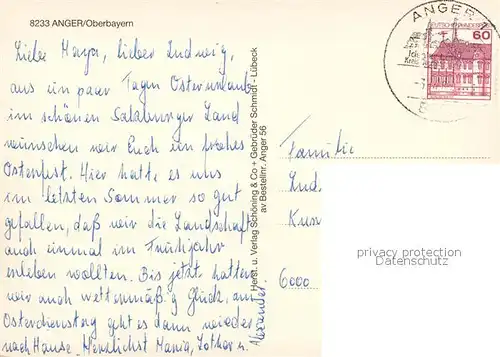 8233 ANGER/Oberbayern
Liebe Maya, lieber Ludwig,
aus ein paar Tagen Osterurlaub
im schönen Salzburger Land
wünschen wir Euch ein frohes
Osterfest. Hier hatte es uns
im letzten Sommer so gut
gefallen, daß wir die Landschaft
auch einmal im Frühjahr
erleben wollten. Bis jetzt hatten
wir auch wettermäßig Glück, am
Osterdienstag geht es dann wieder
nach Hause. Herzlichst Maria, Lothar u.
Alexander
Herst. u. Verlag Schöning & Co + Gebrüder Schmidt · Lübeck
Bestellnr. Anger 56
ANGER
DEUTSCHE BUNDESPOST
60
Familie
Lud
6000
privacy protection
Datenschutz